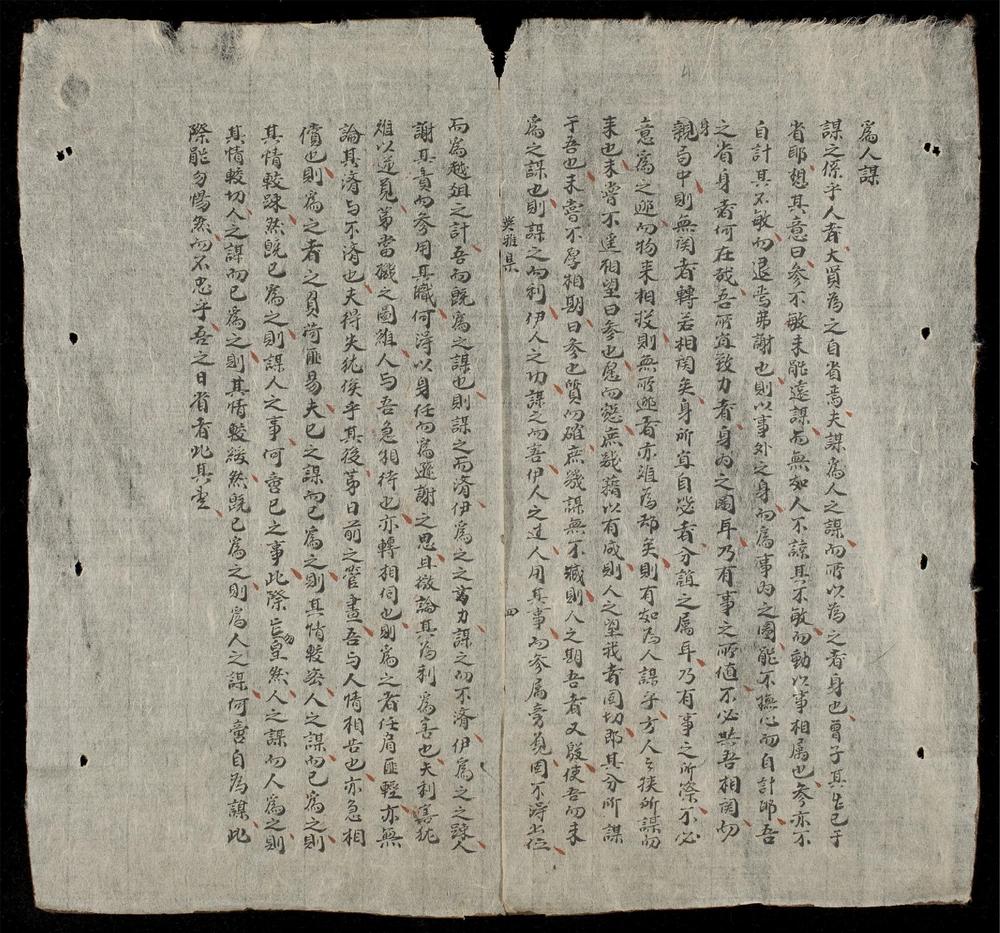 為人謀
謀之係乎人者大賢為之自省焉夫謀為人之謀而所以為之者身也曾子其生已于
省耶想其意曰參不敏未能遠謀而無如人不諒其不敏而動以事相屬也參亦不
自計其不敏而退焉弗謝也則以事外之身而為事內之圖能不撫心而自計耶吾
之省身者何在哉吾所宜致力者身內之圖耳乃有事之所值不必與吾相關切
身親與中則無関者轉若相関矣身所宜自必者分誼之属耳乃有事之所際不必
意為之迎而物来相投則無所迎者亦难為却矣則有如為人謀乎方人之挾所謀而
来也未嘗不遥相望曰參也愚而慤庶幾藉以有成則人之望我者固切即其分所謀
于吾也未嘗不厚相期曰參也質而確庶幾謀無不臧則人之期吾者又殷使吾而未
為之謀也則謀之而利伊人之功謀之而害伊人之过人用其事而參属旁覌固不得出位
英雅集
四
而為越俎之計吾而既為之謀也則謀之而济伊為之之力謀之而不济伊為之之疎人
謝其責而參用其職何得以身任而為遜謝之思且徴論其為利為害也夫利害犹
难以逆覓第當機之圖雖人与吾急相待也亦轉相伺也則為之者任肩匪輕亦無
論其济与不济也夫得失犹俟乎其後第日前之營畫吾与人情相告也亦急相
償也則為之者之負荷匪易夫己之謀而己為之則其情較密人之謀而己為之則
其情較踈然既已為之則謀人之事何啻己之事此際豈皇然人之謀而人為之則
其情較切人之謀而己為之則其情較緩然既己為之則為人之謀何啻自為謀此
際能勿惕然而不忠乎吾之日省者此其壹